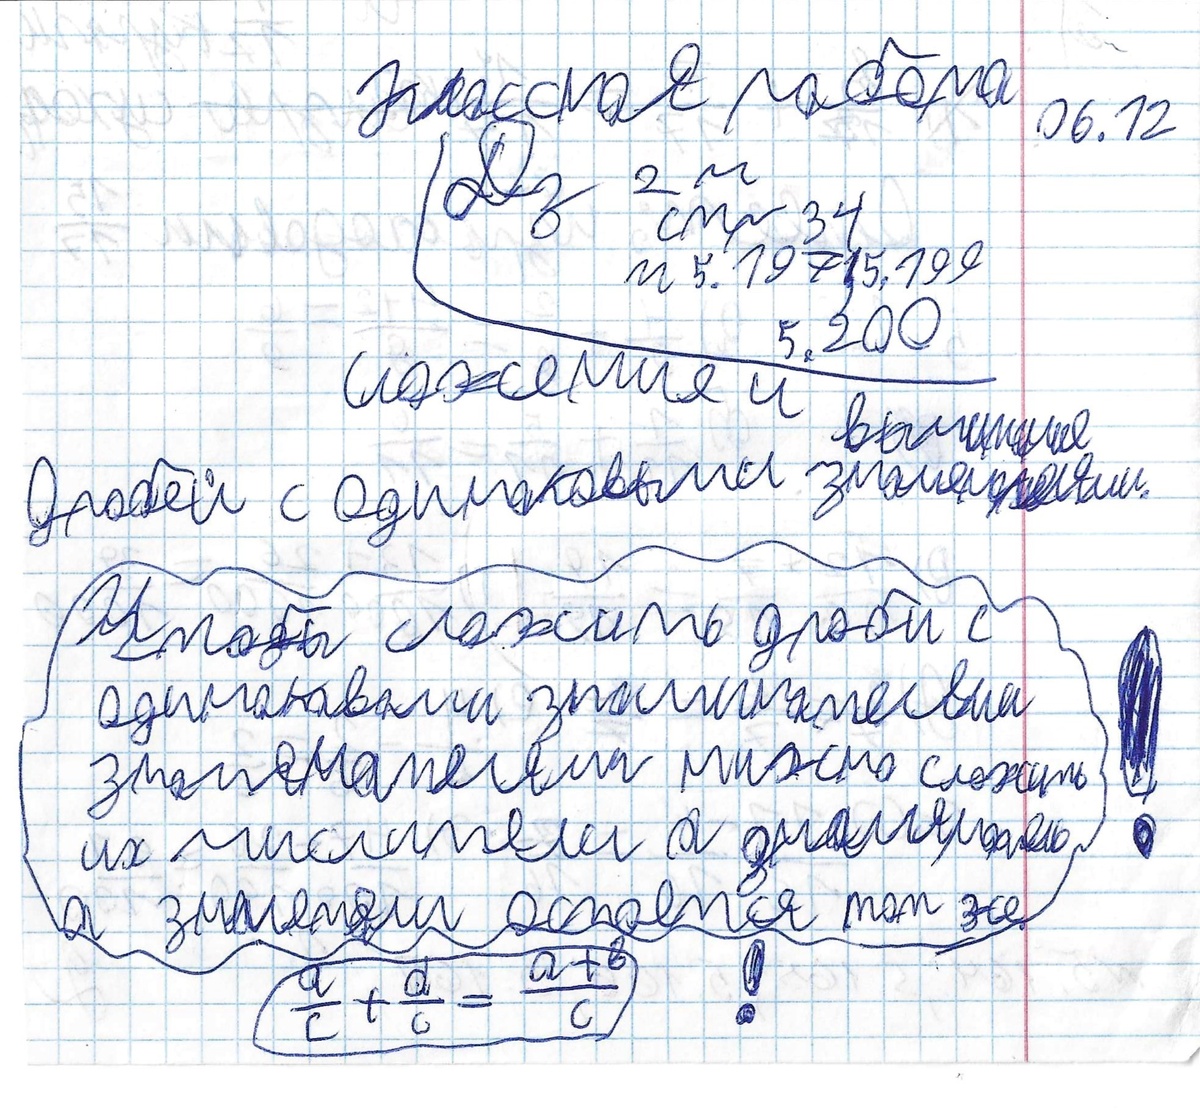 Классная работа
06.12
Дз 2 ч
стр 34
н 5.197, 5.199
5.200
Сложение и
вычитание
дробей с одинаковыми знаменателями.
Чтобы сложить дроби с
одинаковыми
знаменателями можно сложить
их числители а знаменатель
а остается тот же.
a/c + d/c = a+b/c !